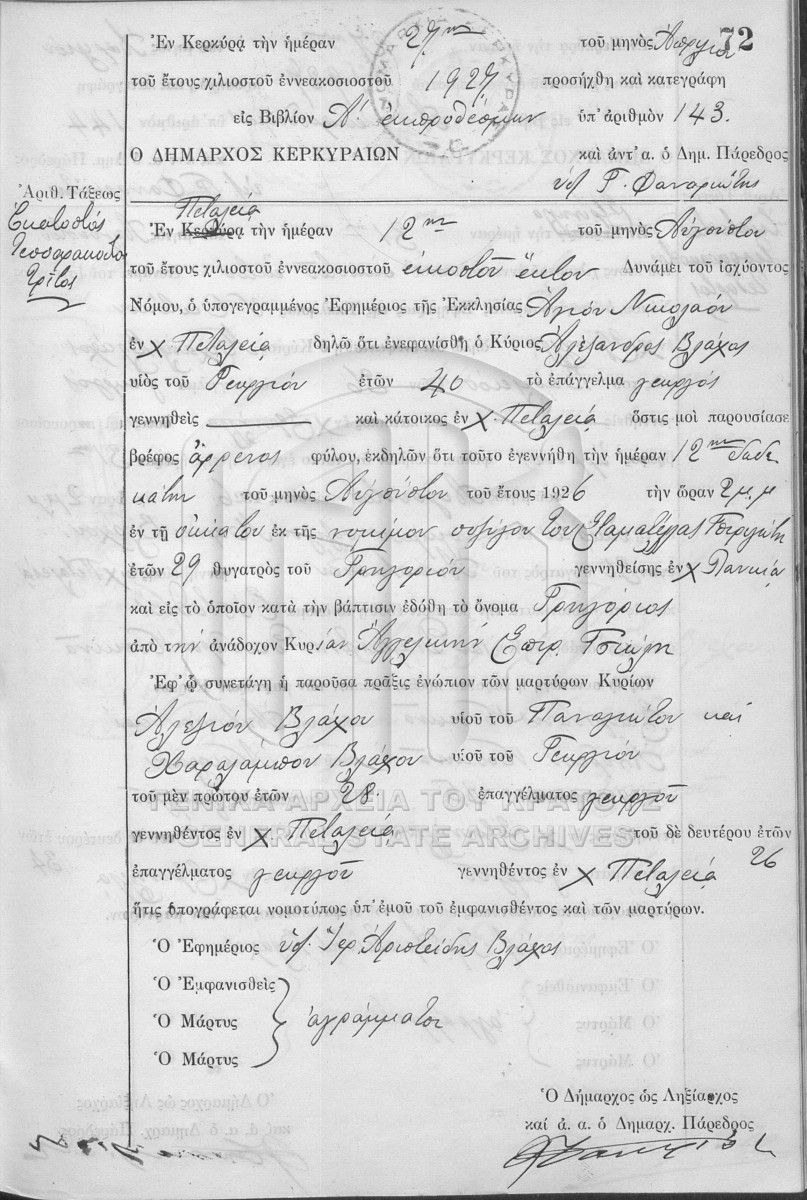 72
Ἐν Κερκύρᾳ τὴν ἡμέραν 27ην τοῦ μηνὸς Ἀπριλίου
τοῦ ἔτους χιλιοστοῦ ἐννεακοσιοστοῦ 1927 προσήχθη καὶ κατεγράφη
εἰς Βιβλίον Α' ἐκπροθέσμων ὑπ' ἀριθμὸν 143.
Ο ΔΗΜΑΡΧΟΣ ΚΕΡΚΥΡΑΙΩΝ καὶ ἀντ' α. ὁ Δημ. Πάρεδρος
Γ. Φαναριώτης
Ἀριθ. Τάξεως
Ἑκατοστὸς
Τεσσαρακοστὸς
Τρίτος
Πεταλείᾳ
Ἐν Κερκύρᾳ τὴν ἡμέραν 12ην τοῦ μηνὸς Αὐγούστου
τοῦ ἔτους χιλιοστοῦ ἐννεακοσιοστοῦ εἰκοστοῦ ἕκτου Δυνάμει τοῦ ἰσχύοντος
Νόμου, ὁ ὑπογεγραμμένος Ἐφημέριος τῆς Ἐκκλησίας Ἁγίου Νικολάου
ἐν χ Πεταλείᾳ δηλῶ ὅτι ἐνεφανίσθη ὁ Κύριος Ἀλέξανδρος Βλάχος
υἱὸς τοῦ Γεωργίου ἐτῶν 40 τὸ ἐπάγγελμα γεωργός
γεννηθεὶς καὶ κάτοικος ἐν χ. Πεταλείᾳ ὅστις μοὶ παρουσίασε
βρέφος ἄρρενος φύλου, ἐκδηλῶν ὅτι τοῦτο ἐγεννήθη τὴν ἡμέραν 12ην δωδε
κάτην τοῦ μηνὸς Αὐγούστου τοῦ ἔτους 1926 τὴν ὥραν 2 μ.μ
ἐν τῇ οἰκίᾳ του ἐκ τῆς νομίμου συζύγου του Σταματέλλας
ἐτῶν 29 θυγατρὸς τοῦ Γρηγορίου γεννηθείσης ἐν χ
καὶ εἰς τὸ ὁποῖον κατὰ τὴν βάπτισιν ἐδόθη τὸ ὄνομα Γρηγόριος
ἀπὸ τὴν ἀνάδοχον Κυρίαν Ἀγγελικὴν Σπυρ.
Ἐφ' ᾧ συνετάγη ἡ παροῦσα πρᾶξις ἐνώπιον τῶν μαρτύρων Κυρίων
Ἀλεξίου Βλάχου υἱοῦ τοῦ Παναγιώτου καὶ
Χαραλάμπου Βλάχου υἱοῦ τοῦ Γεωργίου
τοῦ μὲν πρώτου ἐτῶν 28 ἐπαγγέλματος γεωργοῦ
ΓΕΝΙΚΑ ΑΡΧΕΙΑ ΤΟΥ ΚΡΑΤΟΥΣ
γεννηθέντος ἐν χ. Πεταλείᾳ τοῦ δὲ δευτέρου ἐτῶν 26
GENERAL STATE ARCHIVES
ἐπαγγέλματος γεωργοῦ γεννηθέντος ἐν χ Πεταλείᾳ
ἥτις ὑπογράφεται νομοτύπως ὑπ' ἐμοῦ τοῦ ἐμφανισθέντος καὶ τῶν μαρτύρων.
Ὁ Ἐφημέριος ὑπ. Ἱερ. Ἀριστείδης Βλάχος
Ὁ Ἐμφανισθεὶς
Ὁ Μάρτυς ἀγράμματοι
Ὁ Μάρτυς
Ὁ Δήμαρχος ὡς Ληξίαρχος
καί ἀ. α. ὁ Δημαρχ. Πάρεδρος